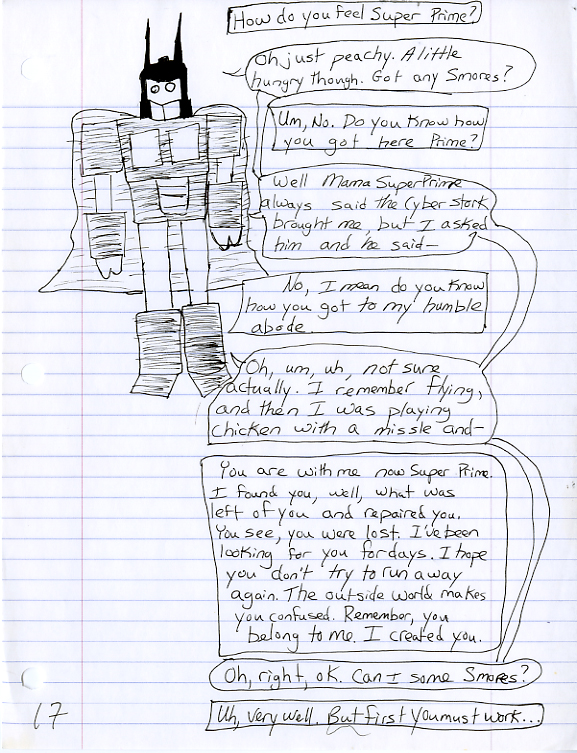 How do you feel Super Prime?
Oh just peachy. A little
hungry though. Got any Smores?
Um, No. Do you know how
you got here Prime?
Well Mama SuperPrime
always said the Cyber stork
brought me, but I asked
him and he said—
No, I mean do you know
how you got to my humble
abode.
Oh, um, uh, not sure
actually. I remember flying,
and then I was playing
chicken with a missle and—
You are with me now Super Prime.
I found you, well, what was
left of you and repaired you.
You see, you were lost. I've been
looking for you for days. I hope
you don't try to run away
again. The outside world makes
you confused. Remember, you
belong to me. I created you.
Oh, right, ok. Can I some Smores?
Uh, very well. But first you must work...
17